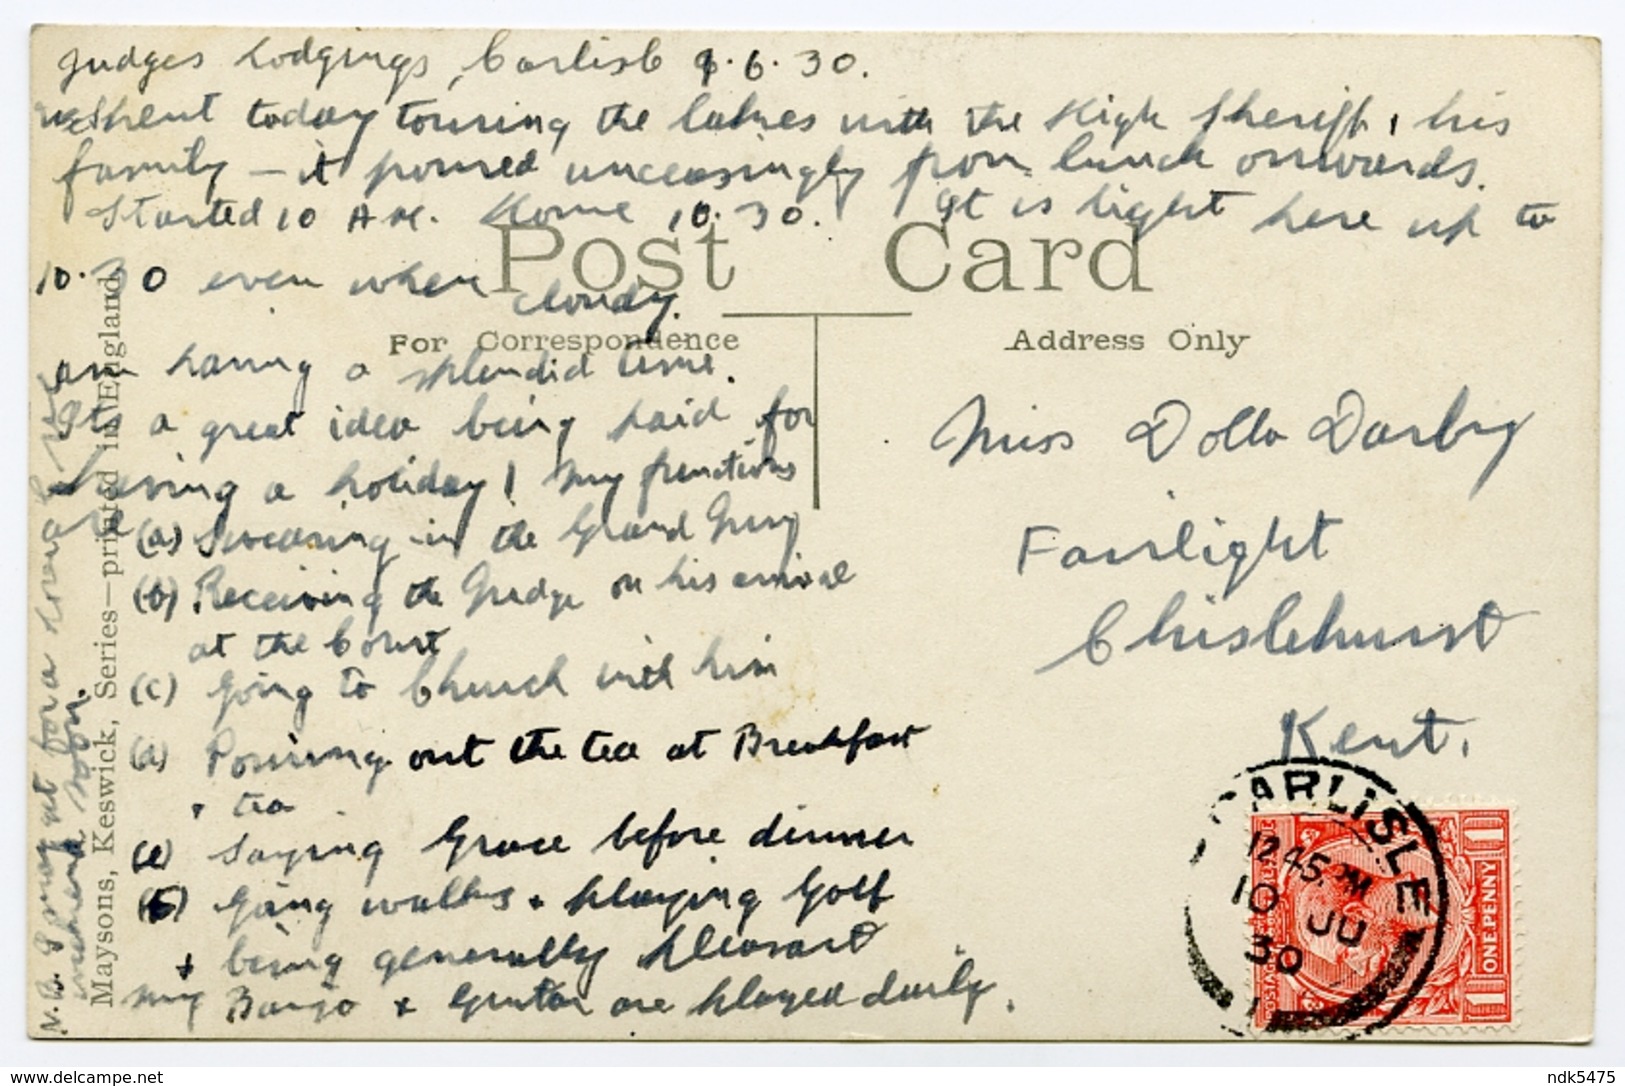 Judges Lodgings, Carlisle 9.6.30.
We Spent today touring the lakes with the High Sheriff & his
family – it poured unceasingly from lunch onwards.
Started 10 AM. Home 10.30. It is light here up to
10.30 even when cloudy.
Post Card
For Correspondence
Address Only
am having a splendid time.
Its a great idea being paid for
having a holiday! My functions
are (a) Swearing in the Grand Jury
(b) Receiving the Judge on his arrival
at the Court
(c) Going to Church with him
(d) Pouring out the tea at Breakfast
+ tea
(e) Saying Grace before dinner
(f) Going walks + playing Golf
+ being generally pleasant
My Banjo + Guitar are played daily.
N.B. I may get for a
weekend soon.
Maysons, Keswick, Series—printed in England
Miss Dolla Darby
Fairlight
Chislehurst
Kent.
CARLISLE
12 45 PM
10 JU
30
POSTAGE
ONE PENNY
1 1
ndk5475